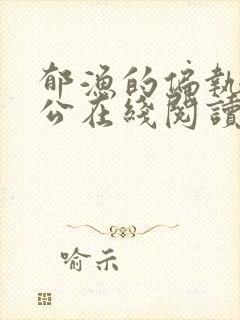 郁漁的偏執
公在綫閱讀
喻示